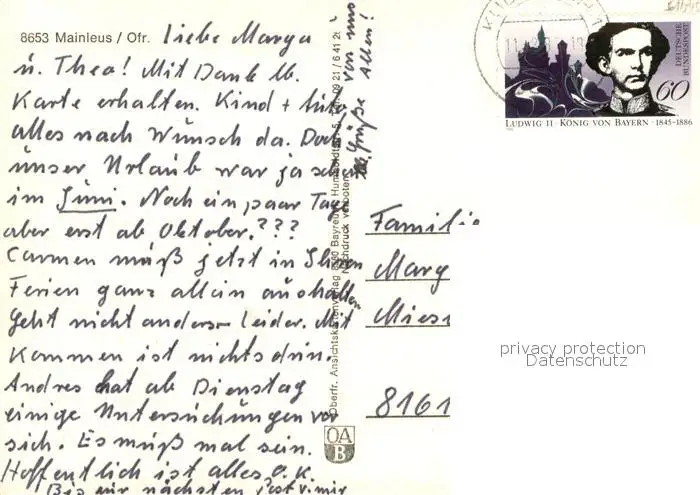 8653 Mainleus / Ofr. Liebe Marga
u. Thea! Mit Dank lb.
Karte erhalten. Kind +
alles nach Wunsch da. Doch
unser Urlaub war ja schon
im Juni. Noch ein paar Tage
aber erst ab Oktober.???
Carmen muß jetzt in Ihren
Ferien ganz allein aushalten
Geht nicht anders – leider. Mit
Kommen ist nichts drin.
Andres hat ab Dienstag
einige Untersuchungen vor
sich. Es muß mal sein.
Hoffentlich ist alles o.K.
Bis zur nächsten
von uns
allen!
Grüße
Oberfr. Ansichtskartenverlag Bayreuth
Nachdruck verboten
OA
B
DEUTSCHE
BUNDESPOST
60
LUDWIG II · KÖNIG VON BAYERN · 1845-1886
Familie
Marg
Mies
8161
privacy protection
Datenschutz